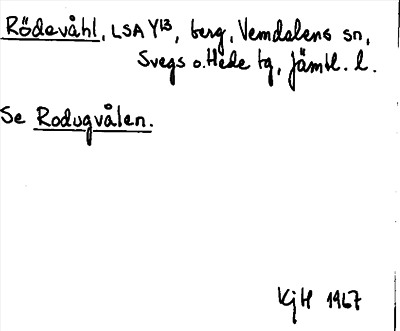 Rödevåhl, LSA Y13, berg, Vemdalens sn,
Svegs o. Hede tg, Jämtl. l.
Se Rodugvålen.
KjH 1967